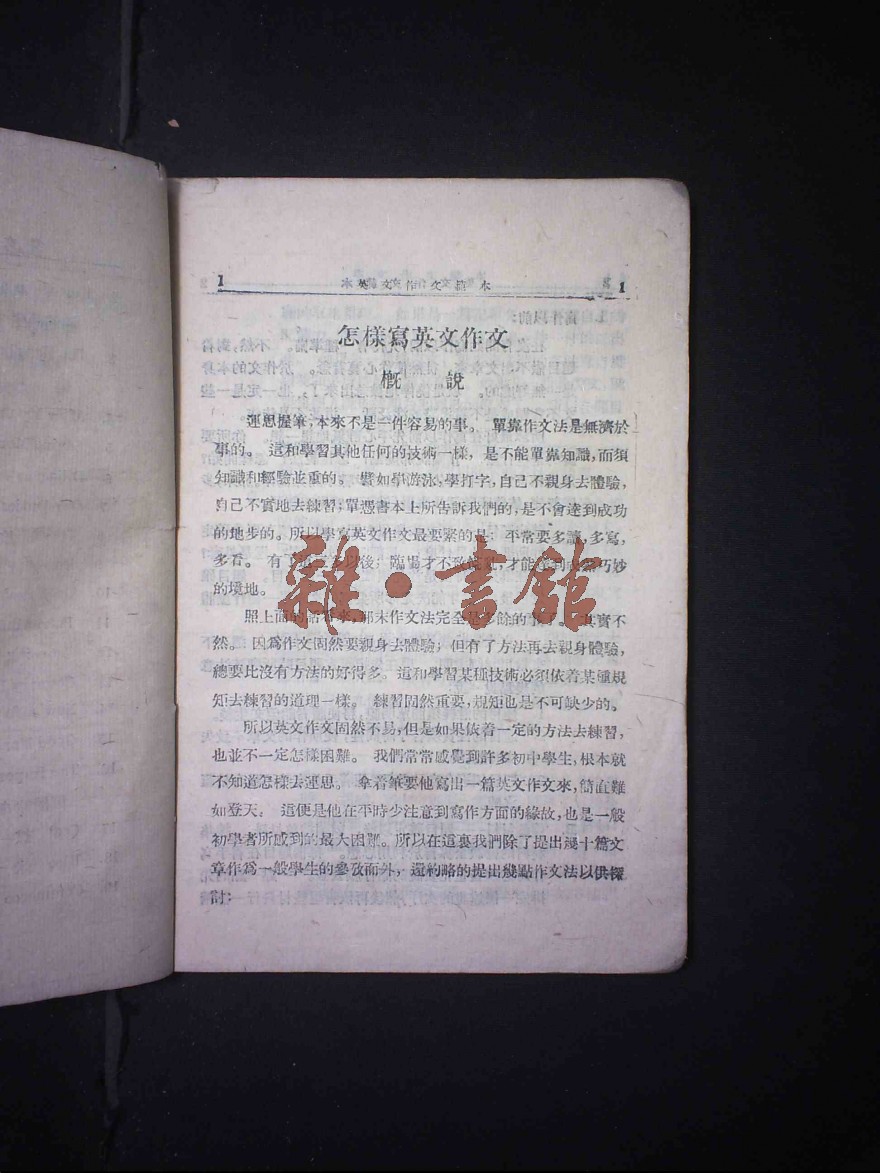 1 英文作文範本 1
怎樣寫英文作文
概說
運思握筆,本來不是一件容易的事。 單靠作文法是無濟於
事的。 這和學習其他任何的技術一樣, 是不能單靠知識,而須
知識和經驗並重的。 譬如學游泳,學打字,自己不親身去體驗,
自己不實地去練習;單憑書本上所告訴我們的,是不會達到成功
的地步的。所以學寫英文作文最要緊的是: 平常要多讀,多寫,
多看。 有了 以後; 臨場才不致 ,才能達到 巧妙
的境地。
照上面的話 來,那末作文法完全是多餘的事了。 其實不
然。 因爲作文固然要親身去體驗; 但有了方法再去親身體驗,
總要比沒有方法的好得多。這和學習某種技術必須依着某種規
矩去練習的道理一樣。 練習固然重要,規矩也是不可缺少的。
所以英文作文固然不易,但是如果依着一定的方法去練習,
也並不一定怎樣困難。 我們常常感覺到許多初中學生,根本就
不知道怎樣去運思。 拿着筆要他寫出一篇英文作文來,簡直難
如登天。 這便是他在平時少注意到寫作方面的緣故,也是一般
初學者所感到的最大困難。所以在這裏我們除了提出幾十篇文
章作爲一般學生的參攷而外, 還約略的提出幾點作文法以供探
討:
雜·書館